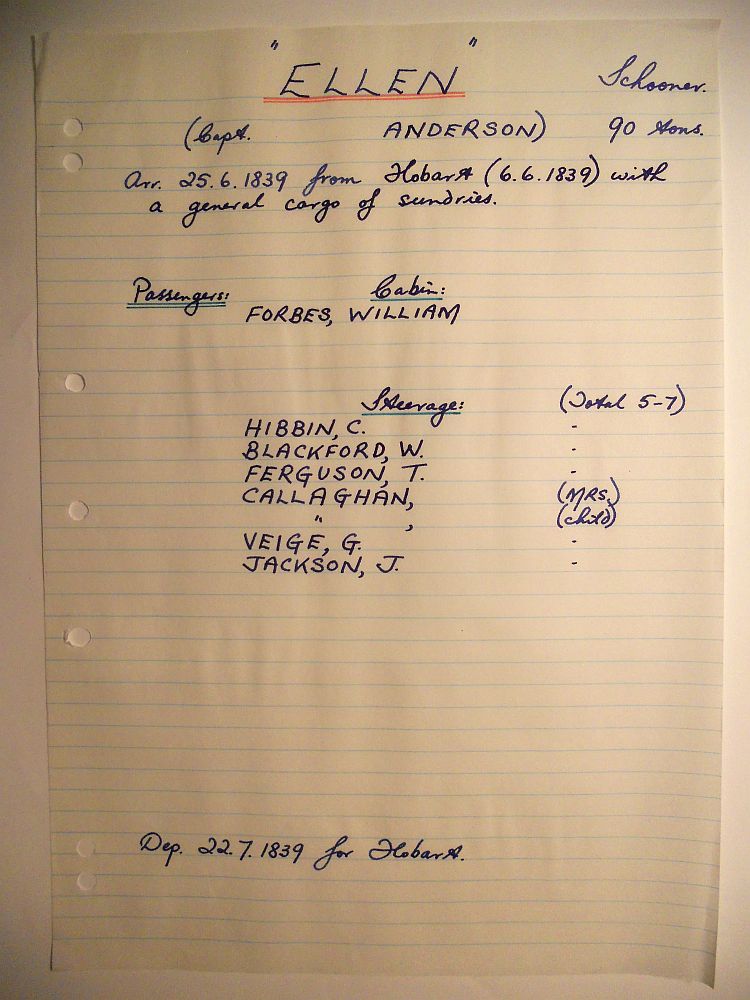 "ELLEN" Schooner.
(Capt. ANDERSON) 90 tons.
Arr. 25.6.1839 from Hobart (6.6.1839) with
a general cargo of sundries.
Passengers: Cabin:
FORBES, WILLIAM
Steerage: (Total 5-7)
HIBBIN, C. -
BLACKFORD, W. -
FERGUSON, T. -
CALLAGHAN, (MRS.)
" , (child)
VEIGE, G. -
JACKSON, J. -
Dep. 22.7.1839 for Hobart.